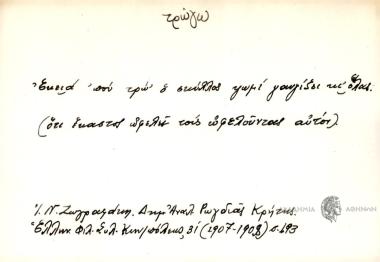 τρώγω
Ἐκειά 'πού τρώ' ὁ σκύλλος ψωμί γαυγίζει κι' ὅλας.
(ὅτι ἕκαστος ὠφελεῖ τούς ὠφελοῦντας αὐτόν).
Ἰ. Ν. Ζωγραφάκη. Δημ. Ἀναλ. Ρωγδιᾶς Κρήτης.
Ἑλλην. Φιλ. Συλ. Κων/πόλεως 31 (1907-1908) σ. 693
ΑΚΑΔΗΜΙΑ ΑΘΗΝΩΝ